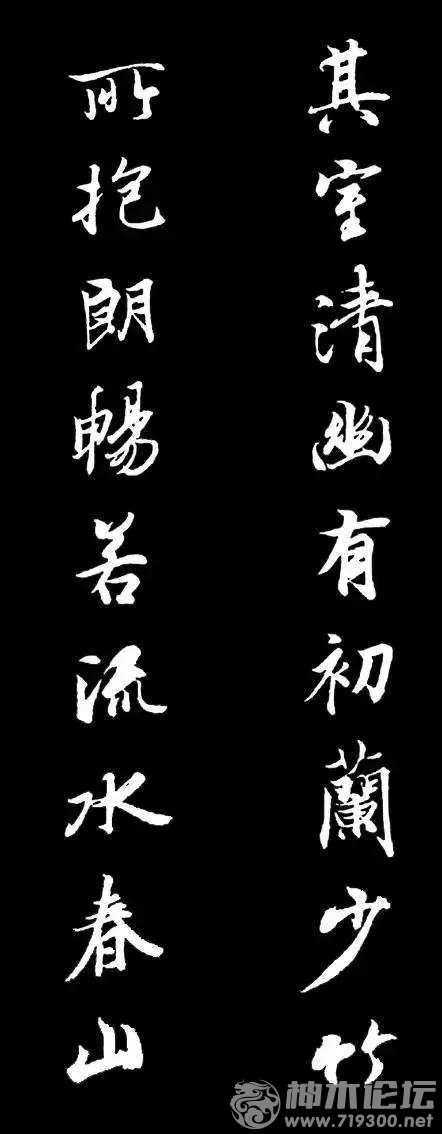 其室清幽有初蘭少竹
所抱朗暢若流水春山
神木论坛
www.719300.net